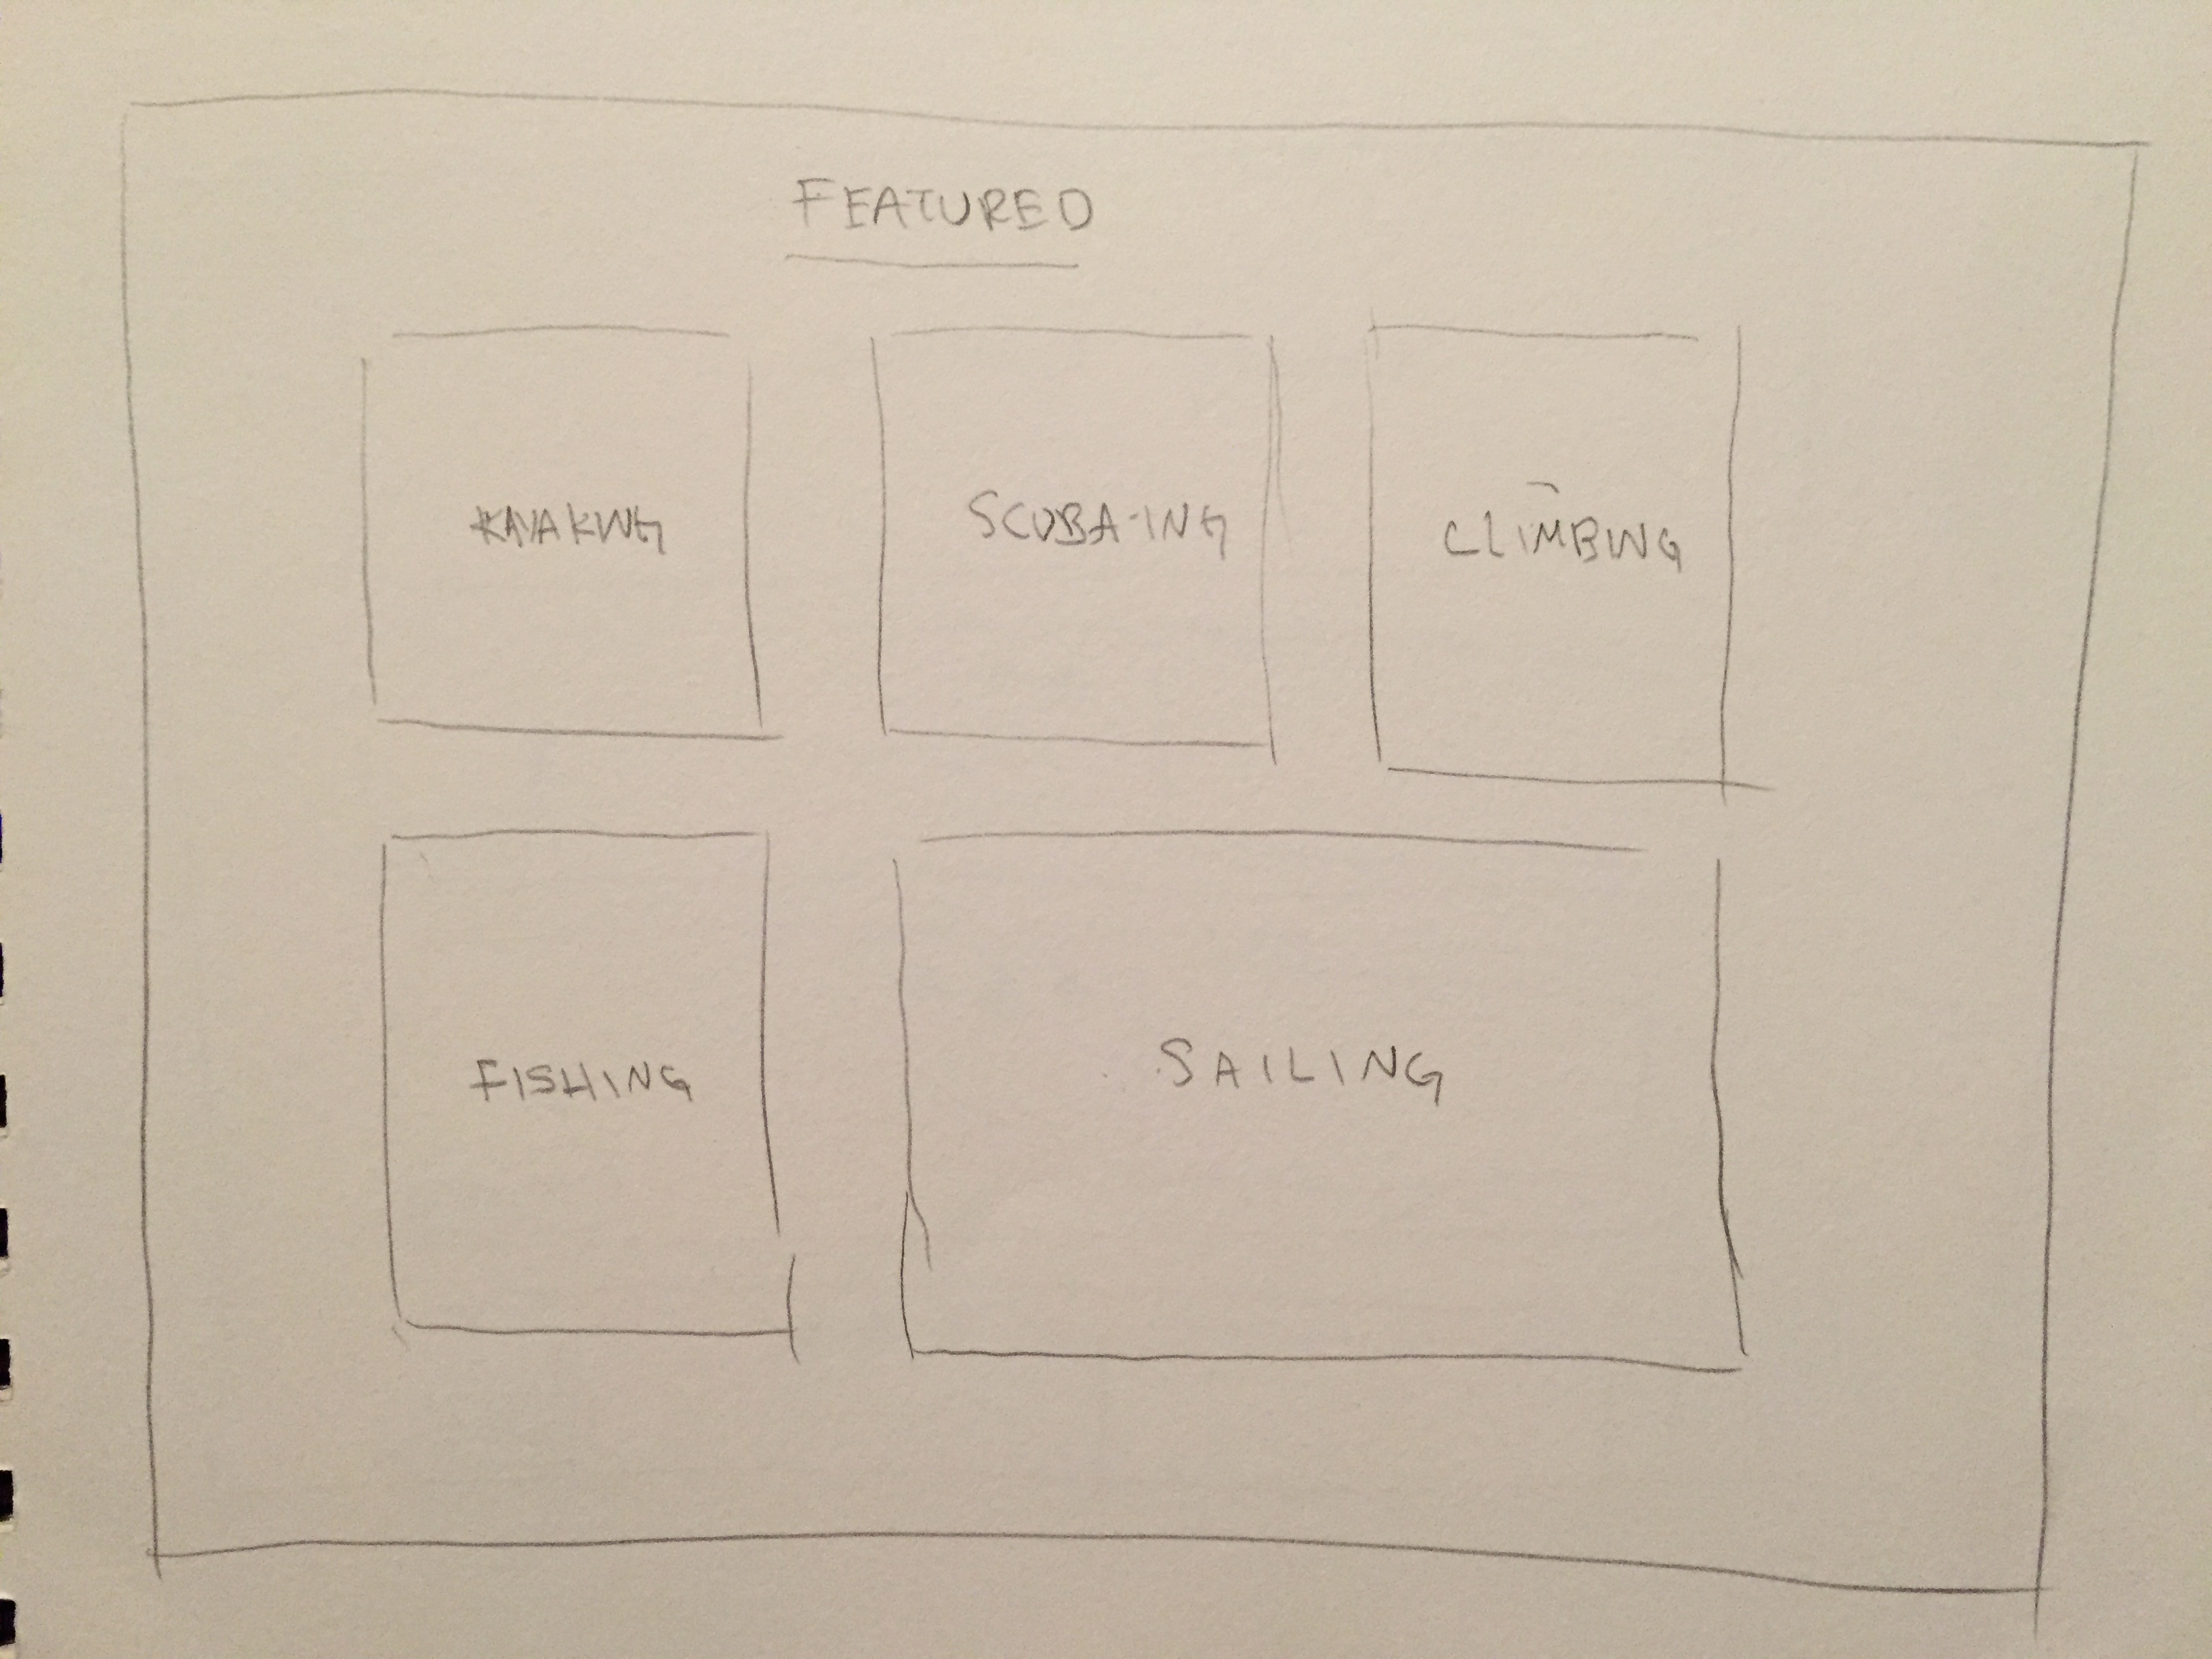 FEATURED
KAYAKING
SCUBA-ING
CLIMBING
FISHING
SAILING